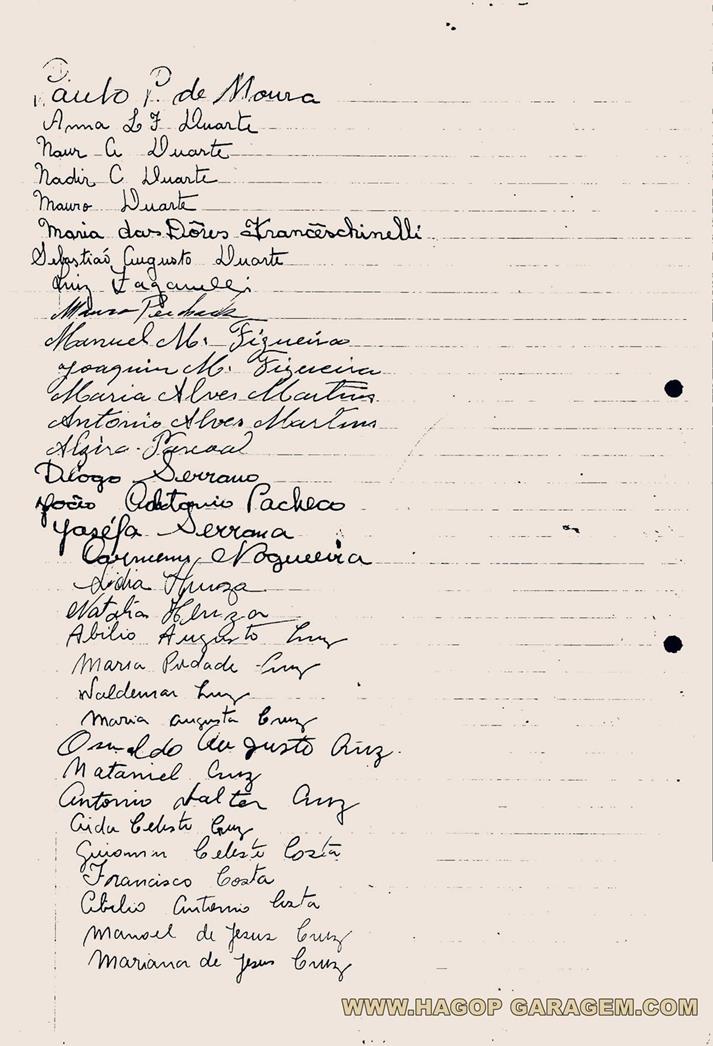 Paulo P. de Moura
Anna L F Duarte
Naur C Duarte
Nadir C Duarte
Mauro Duarte
Maria das Dôres Francêschinelli
Sebastiaõ Augusto Duarte
Luiz Zaganelli
Mauro
Manuel M. Figueira
Joaquin M. Figueira
Maria Alves Martins
Antonio Alves Martins
Alzira Pascoal
Diogo Serrano
João Antonio Pacheco
Joséfa Serrana
Carmem Nogueira
Lidia
Natalia
Abilio Augusto Cruz
Maria Piedade Cruz
Waldemar Cruz
Maria Augusta Cruz
Osvaldo Augusto Cruz.
Nataniel Cruz
Antonio Valter Cruz
Aida Celeste Cruz
Guiomar Celeste Costa
Francisco Costa
Abilio Antonio Costa
Manoel de Jesus Cruz
Mariana de Jesus Cruz
WWW.HAGOP GARAGEM.COM